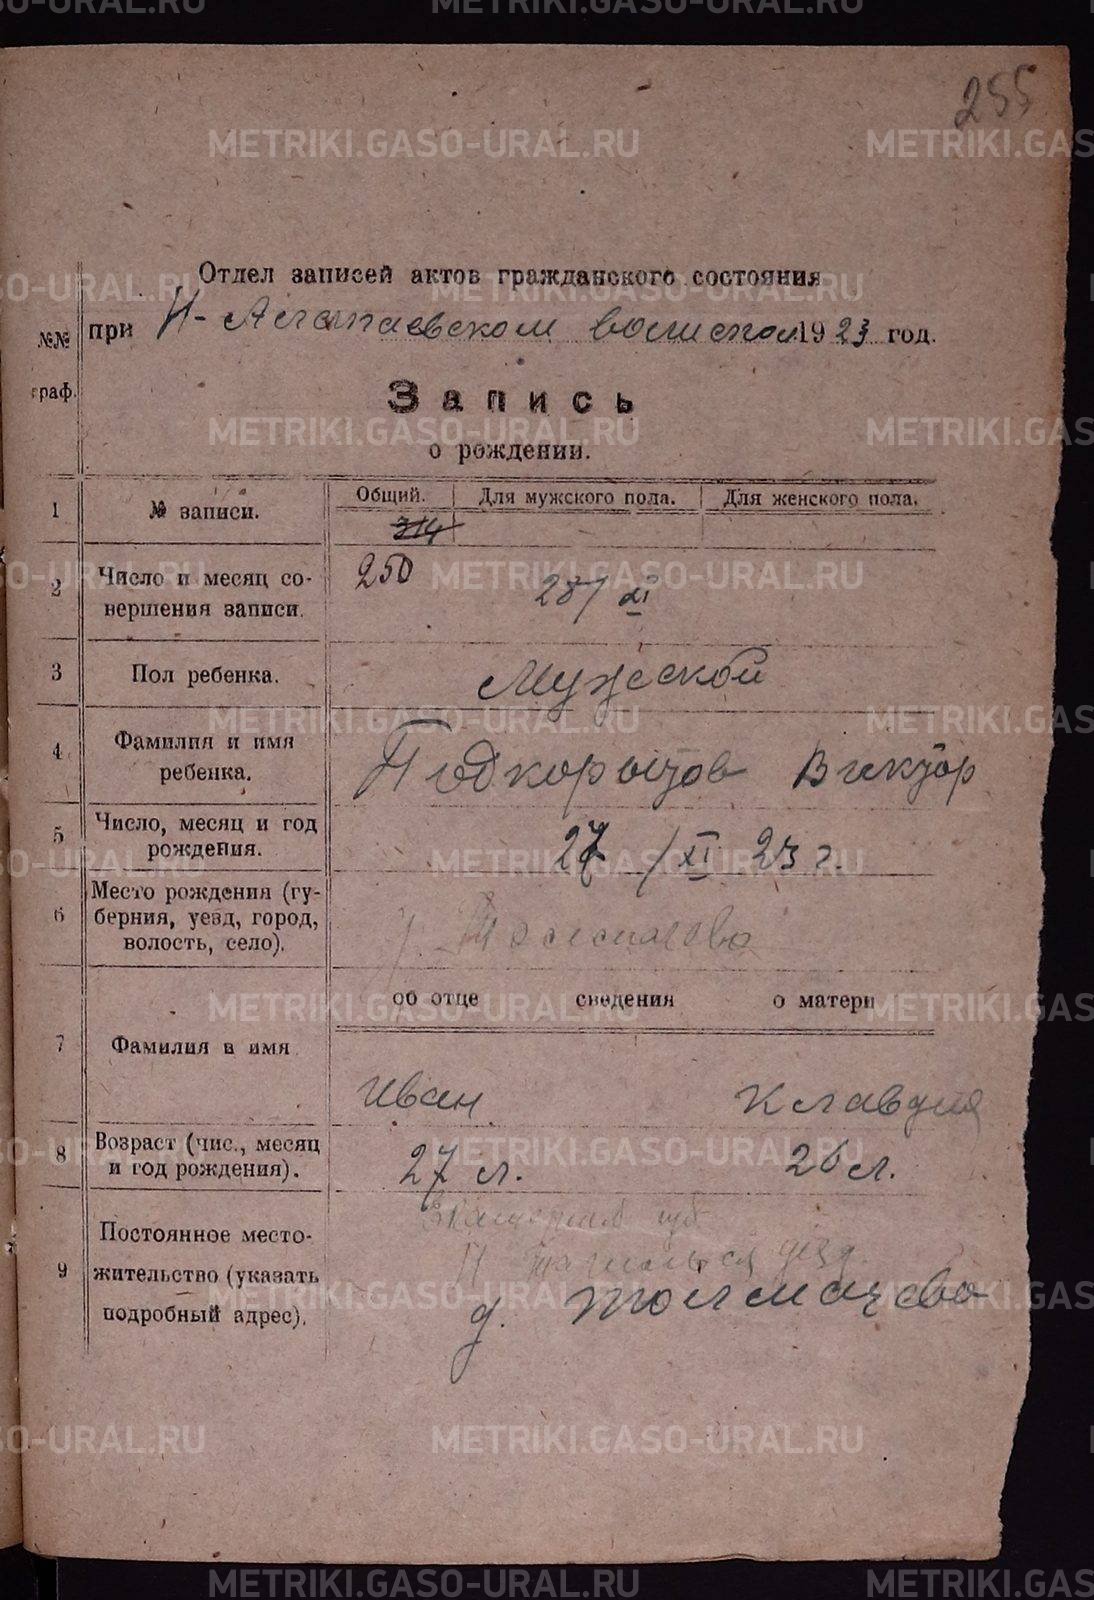 255
Отдел записей актов гражданского состояния
при Н-Алапаевском волиспол. 1923 год.
№№ граф.
Запись
о рождении.
1 № записи. Общий. Для мужского пола. Для женского пола.
314
2 Число и месяц со-
вершения записи.
250 28/XI
3 Пол ребенка. Мужской
4 Фамилия и имя
ребенка.
Подкорытов Виктор
5 Число, месяц и год
рождения.
27/XI 23 г.
6 Место рождения (гу-
берния, уезд, город,
волость, село).
Толмачева
об отце сведения о матери
7 Фамилия и имя
Иван Клавдия
8 Возраст (чис., месяц
и год рождения).
27 л. 26 л.
9 Постоянное место-
жительство (указать
подробный адрес).
губ
Н Тагильск уезд.
д. Толмачева
METRIKI.GASO-URAL.RU